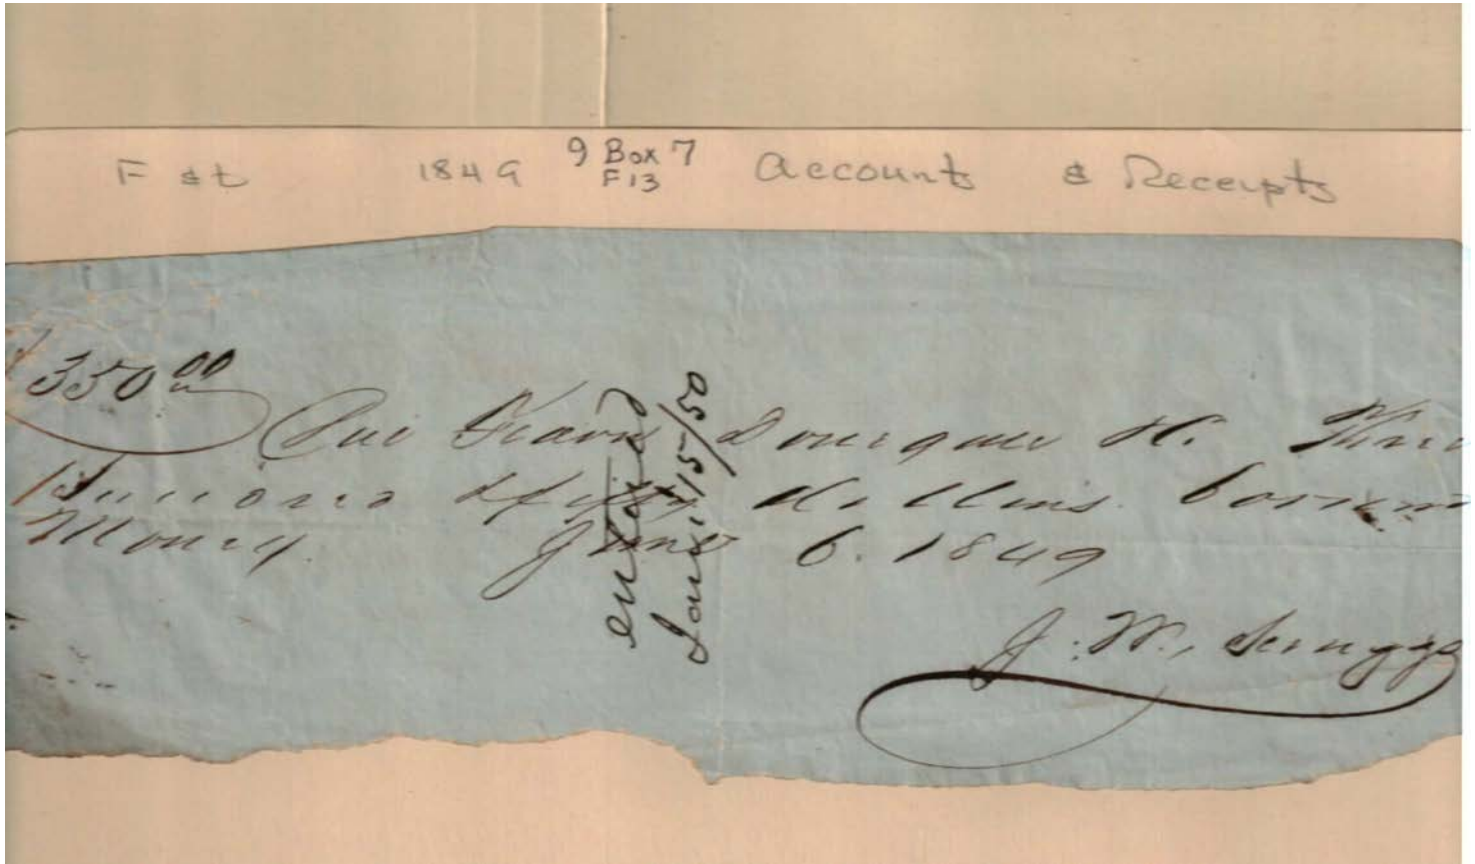 F & t 1849 9 Box 7 F13 Accounts & Receipts
350 00
Due H. Three
Hundred & fifty dollars borrow
Money. June 6. 1849
J. W. Scruggs
entered
Jany 15/50